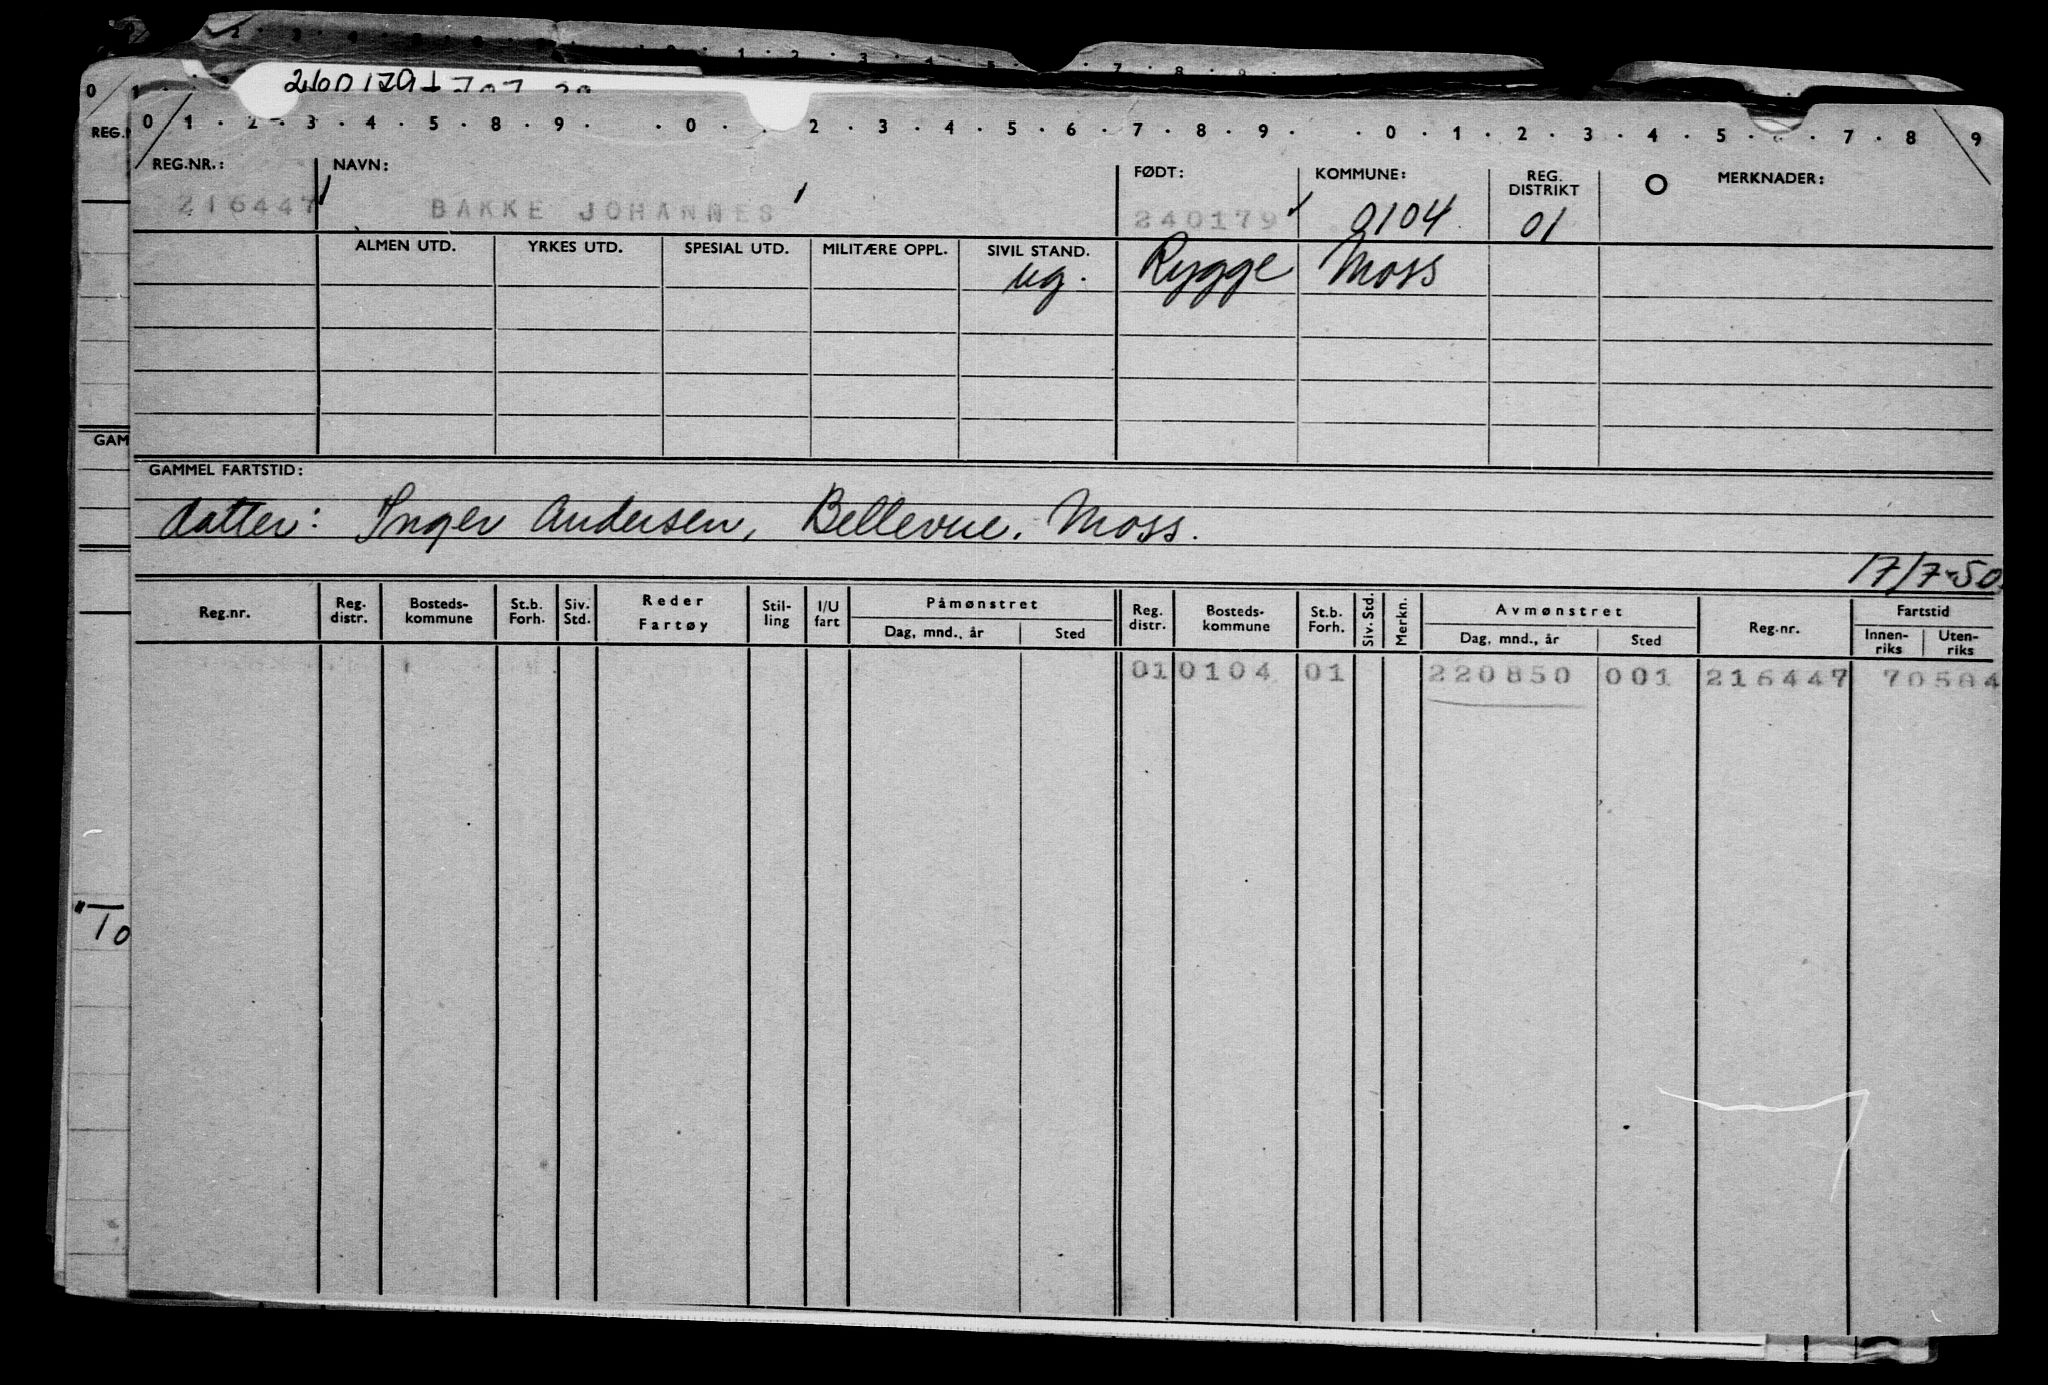 2600179
0 1 2 3 4 5 8 9 0 2 3 4 5 6 7 8 9 0 1 2 3 4 5 6 7 8 9
REG.NR.: NAVN: FØDT: KOMMUNE: REG. DISTRIKT MERKNADER:
216447 BAKKE JOHANNES 240179 0104 01
ALMEN UTD. YRKES UTD. SPESIAL UTD. MILITÆRE OPPL. SIVIL STAND.
ug. Rygge Moss
GAM
GAMMEL FARTSTID:
datter: Inger Andersen, Bellevue. Moss.
17/7-50
Reg.nr. Reg. distr. Bosteds- kommune St.b. Forh. Siv. Std. Reder Fartøy Stil- ling I/U fart Påmønstret Dag, mnd., år Sted Reg. distr. Bosteds- kommune St.b. Forh. Siv. Std. Merkn. Avmønstret Dag, mnd., år Sted Reg.nr. Fartstid Innen- riks Uten- riks
01 0104 01 220850 001 216447 70504
10